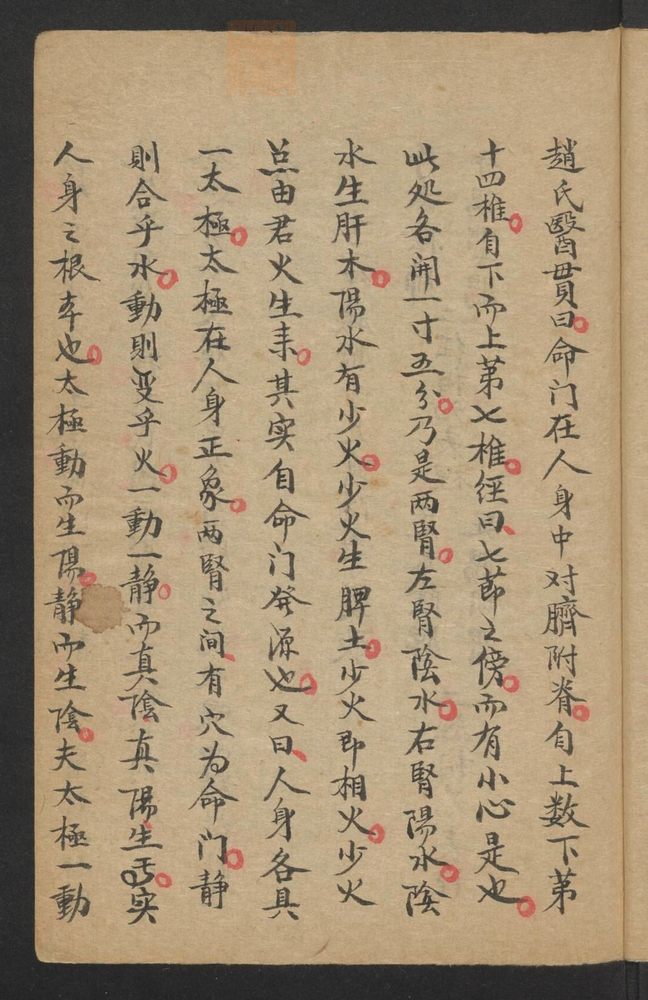 趙氏醫貫曰命门在人身中对臍附脊自上数下第
十四椎自下而上第七椎经曰七節之傍而有小心是也
此处各開一寸五分乃是两腎左腎陰水右腎陽水陰
水生肝木陽水有少火少火生脾土少火即相火少火
总由君火生来其实自命门發源也又曰人身各具
一太極太極在人身正象两腎之间有穴为命门静
則合乎水動則变乎火一動一静而真陰真陽生焉实
人身之根本也太極動而生陽静而生陰夫太極一動